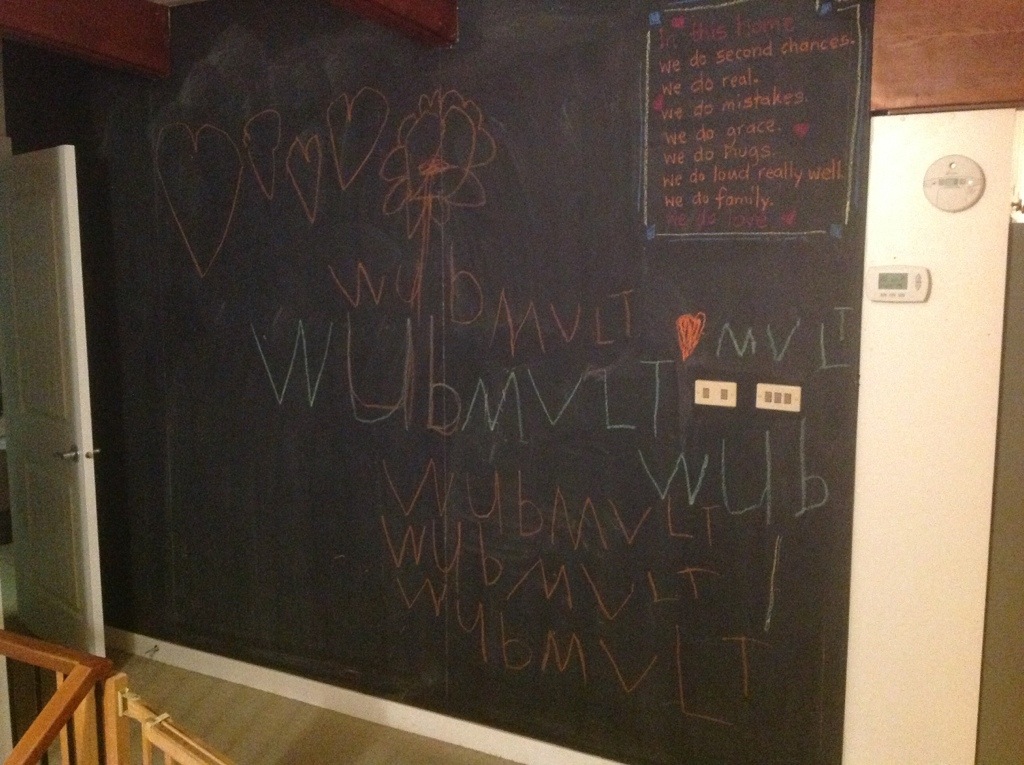 In this home
we do second chances.
we do real.
we do mistakes.
we do grace.
we do hugs.
we do loud really well.
we do family.
we do love
Wub MVLT
MVLT
WUbMVLT
WUb
WUbMVLT
WUbMVLT
WUbMVLT